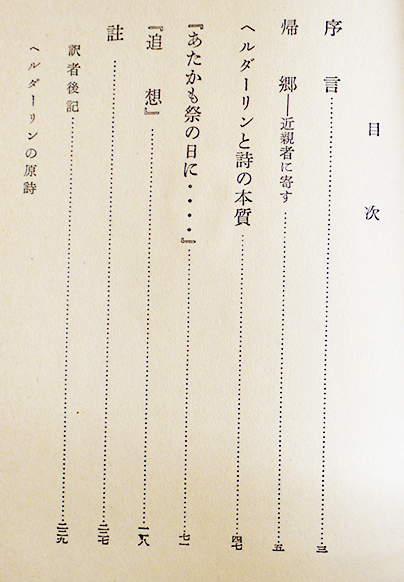 目次
序言……………三
帰郷―近親者に寄す……………五
ヘルダーリンと詩の本質……………四七
『あたかも祭の日に・・・・』……………七一
『追想』……………
註……………
訳者後記……………
ヘルダーリンの原詩